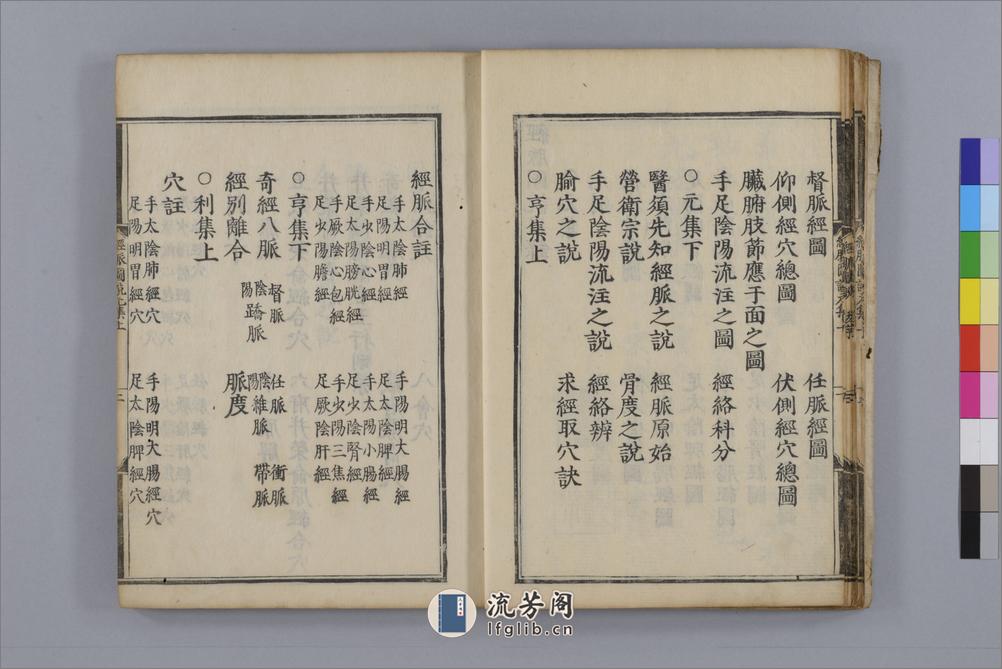 督脈經圖　任脈經圖
仰側經穴總圖　伏側經穴總圖
臟腑肢節應于面之圖
手足陰陽流注之圖　經絡科分
○元集下
醫須先知經脈之說　經脈原始
營衛宗說　骨度之說
手足陰陽流注之說　經絡辨
腧穴之說　求經取穴訣
○亨集上
經脈合註
手太陰肺經　手陽明大腸經
足陽明胃經　足太陰脾經
手少陰心經　手太陽小腸經
足太陽膀胱經　足少陰腎經
手厥陰心包經　手少陽三焦經
足少陽膽經　足厥陰肝經
○亨集下
奇經八脈　督脈　任脈　衝脈
陰蹻脈　陰維脈
陽蹻脈　陽維脈　帶脈
經別離合　脈度
○利集上
穴註
手太陰肺經穴　手陽明大腸經穴
足陽明胃經穴　足太陰脾經穴
流芳阁
lfglib.cn